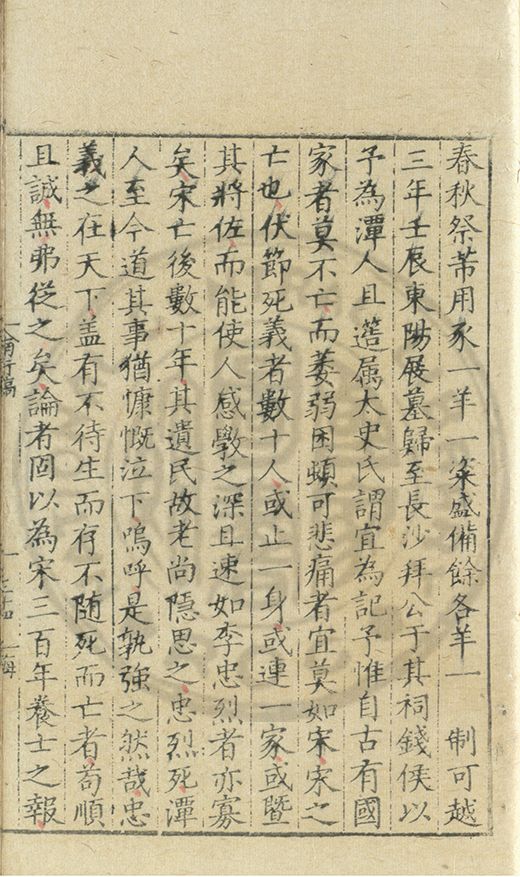 春秋祭常用豕一羊一粢盛備餘各羊一　制可越
三年壬辰東陽展墓歸至長沙拜公于其祠錢侯以
予為潭人且簉属太史氏謂宜為記予惟自古有國
家者莫不亡而萎弱困頓可悲痛者宜莫如宋宋之
亡也伏節死義者數十人或止一身或連一家或曁
其將佐而能使人感斅之深且速如李忠烈者亦寡
矣宋亡後數十年其遺民故老尚隱思之忠烈死潭
人至今道其事猶慷慨泣下嗚呼是孰強之然哉忠
義之在天下盖有不待生而存不随死而亡者苟順
且誠無弗從之矣論者固以為宋三百年養士之報
南行稿